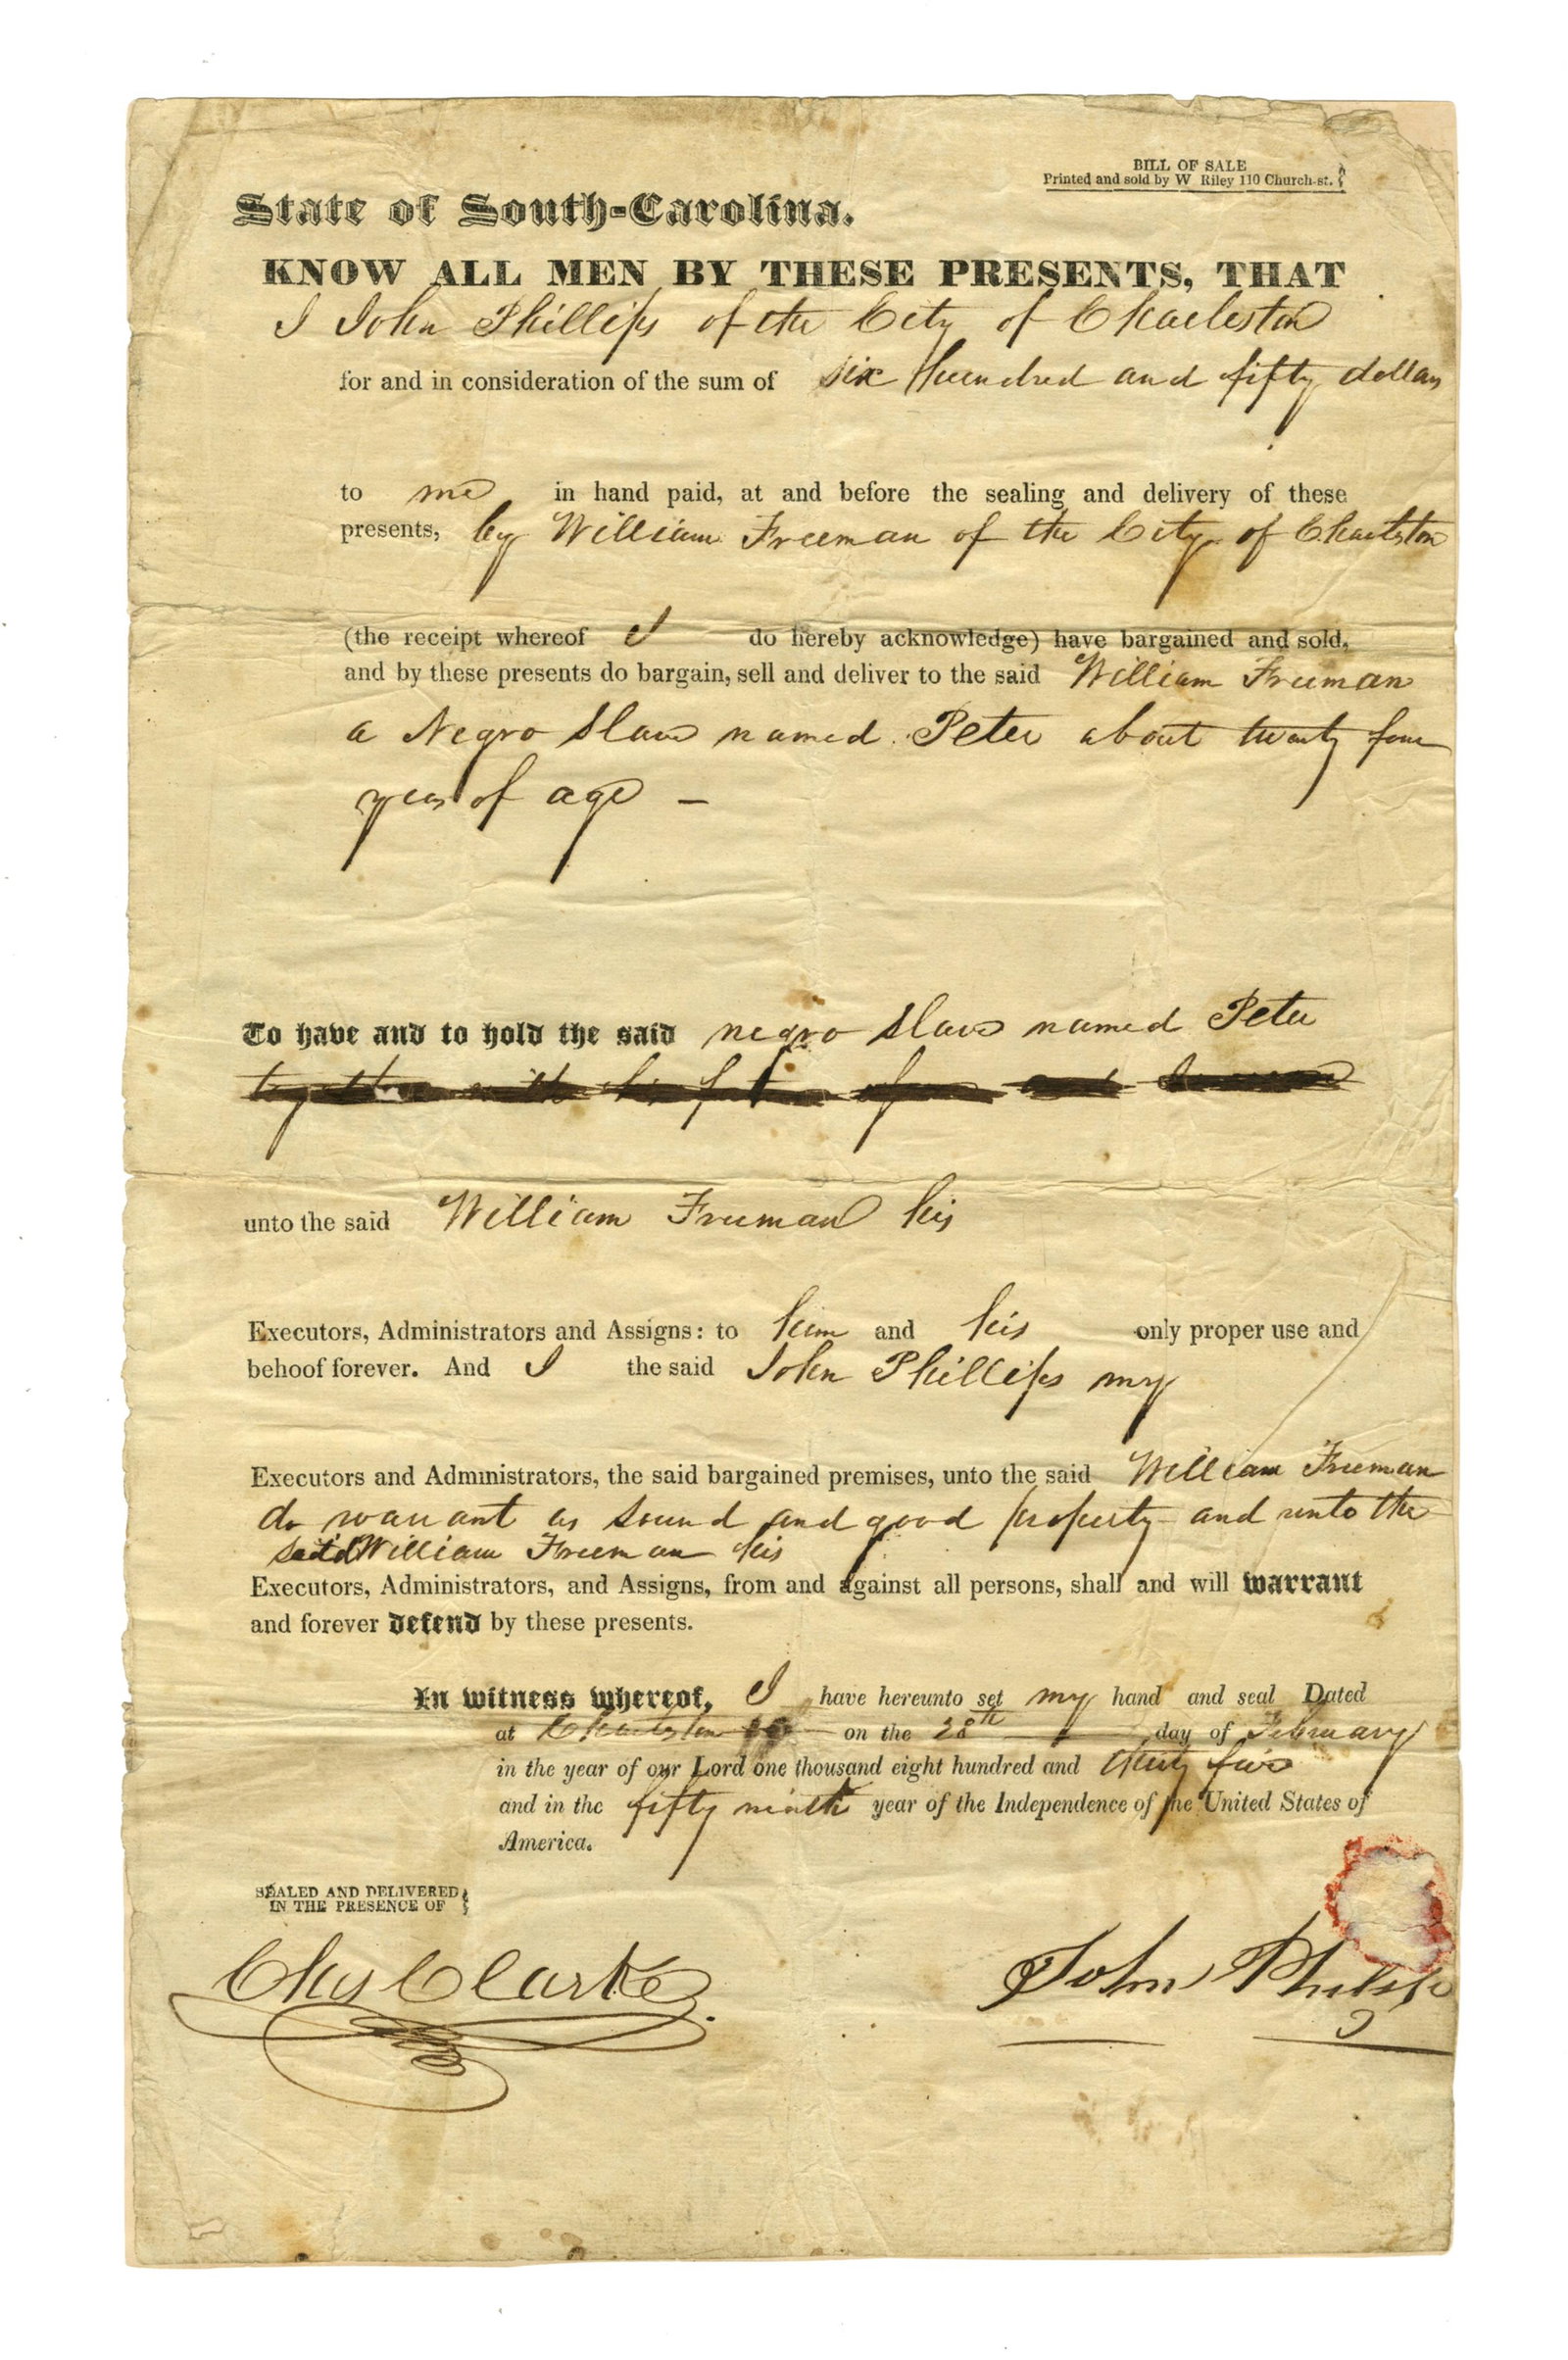 BILL OF SALE
Printed and sold by W Riley 110 Church-st.
State of South-Carolina.
KNOW ALL MEN BY THESE PRESENTS, THAT
I John Phillips of the City of Charleston
for and in consideration of the sum of six hundred and fifty dollars
to me in hand paid, at and before the sealing and delivery of these
presents, by William Freeman of the City of Charleston
(the receipt whereof I do hereby acknowledge) have bargained and sold,
and by these presents do bargain, sell and deliver to the said William Freeman
a Negro Slave named Peter about twenty four
years of age –
To have and to hold the said negro slave named Peter
together with his
unto the said William Freeman his
Executors, Administrators and Assigns: to him and his only proper use and
behoof forever. And I the said John Phillips my
Executors and Administrators, the said bargained premises, unto the said William Freeman
do warrant as sound and good property and unto the
said William Freeman his
Executors, Administrators, and Assigns, from and against all persons, shall and will warrant
and forever defend by these presents.
In witness whereof, I have hereunto set my hand and seal Dated
at Charleston on the 28th day of February
in the year of our Lord one thousand eight hundred and thirty five
and in the fifty ninth year of the Independence of the United States of
America.
SEALED AND DELIVERED
IN THE PRESENCE OF
Chas Clarke
John Philips